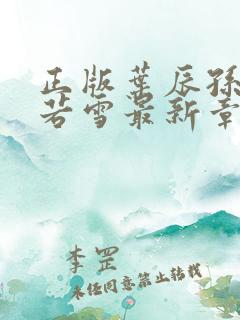 正版叶辰孙
若雪最新章
李罡
未经同意禁止转载